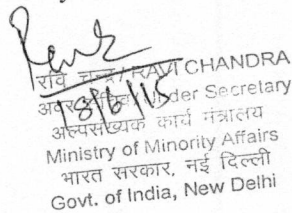 रवि चन्द्र / RAVI CHANDRA
18/6/15
अवर Under Secretary
अल्पसंख्यक कार्य मंत्रालय
Ministry of Minority Affairs
भारत सरकार, नई दिल्ली
Govt. of India, New Delhi